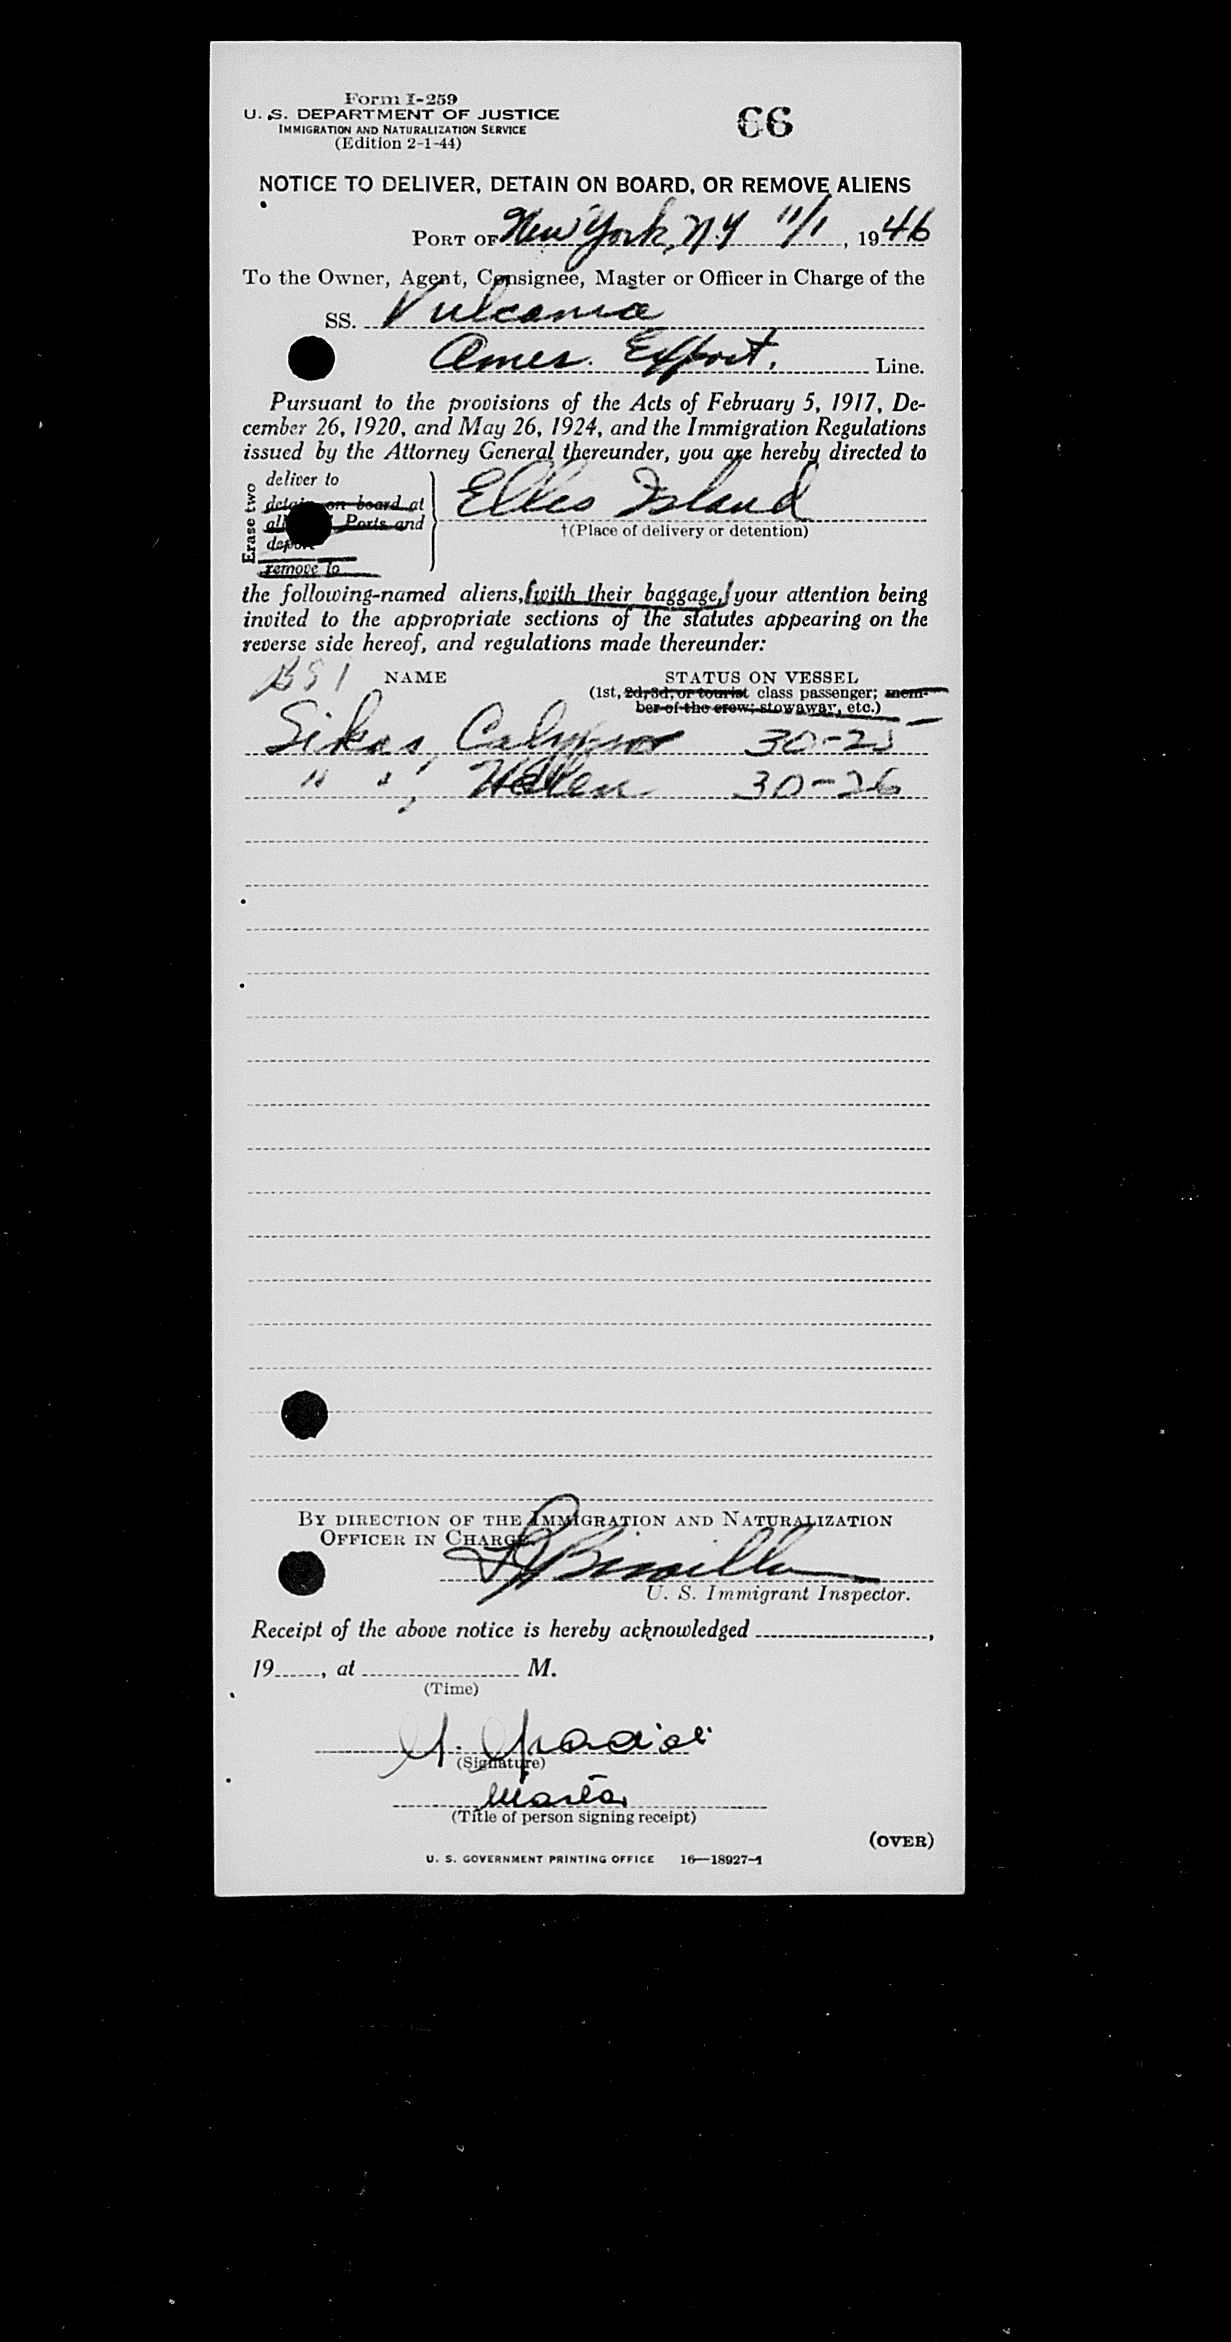 Form I-259
U. S. DEPARTMENT OF JUSTICE
IMMIGRATION AND NATURALIZATION SERVICE
(Edition 2-1-44)
66
NOTICE TO DELIVER, DETAIN ON BOARD, OR REMOVE ALIENS
PORT OF New York, N.Y 11/1, 1946
To the Owner, Agent, Consignee, Master or Officer in Charge of the
SS. Vulcania
Amer. Export. Line.
Pursuant to the provisions of the Acts of February 5, 1917, De-
cember 26, 1920, and May 26, 1924, and the Immigration Regulations
issued by the Attorney General thereunder, you are hereby directed to
Erase two
deliver to
detain on board at
all Ports and
deport
remove to
Ellis Island
†(Place of delivery or detention)
the following-named aliens, [with their baggage,] your attention being
invited to the appropriate sections of the statutes appearing on the
reverse side hereof, and regulations made thereunder:
BSI NAME STATUS ON VESSEL
(1st, 2d, 3d, or tourist class passenger; mem-
ber of the crew; stowaway, etc.)
Sikas, Calypso 30-25
" ", Helen 30-26
BY DIRECTION OF THE IMMIGRATION AND NATURALIZATION
OFFICER IN CHARGE.
U. S. Immigrant Inspector.
Receipt of the above notice is hereby acknowledged ,
19 , at M.
(Time)
(Signature)
Master
(Title of person signing receipt)
(OVER)
U. S. GOVERNMENT PRINTING OFFICE 16—18927-1